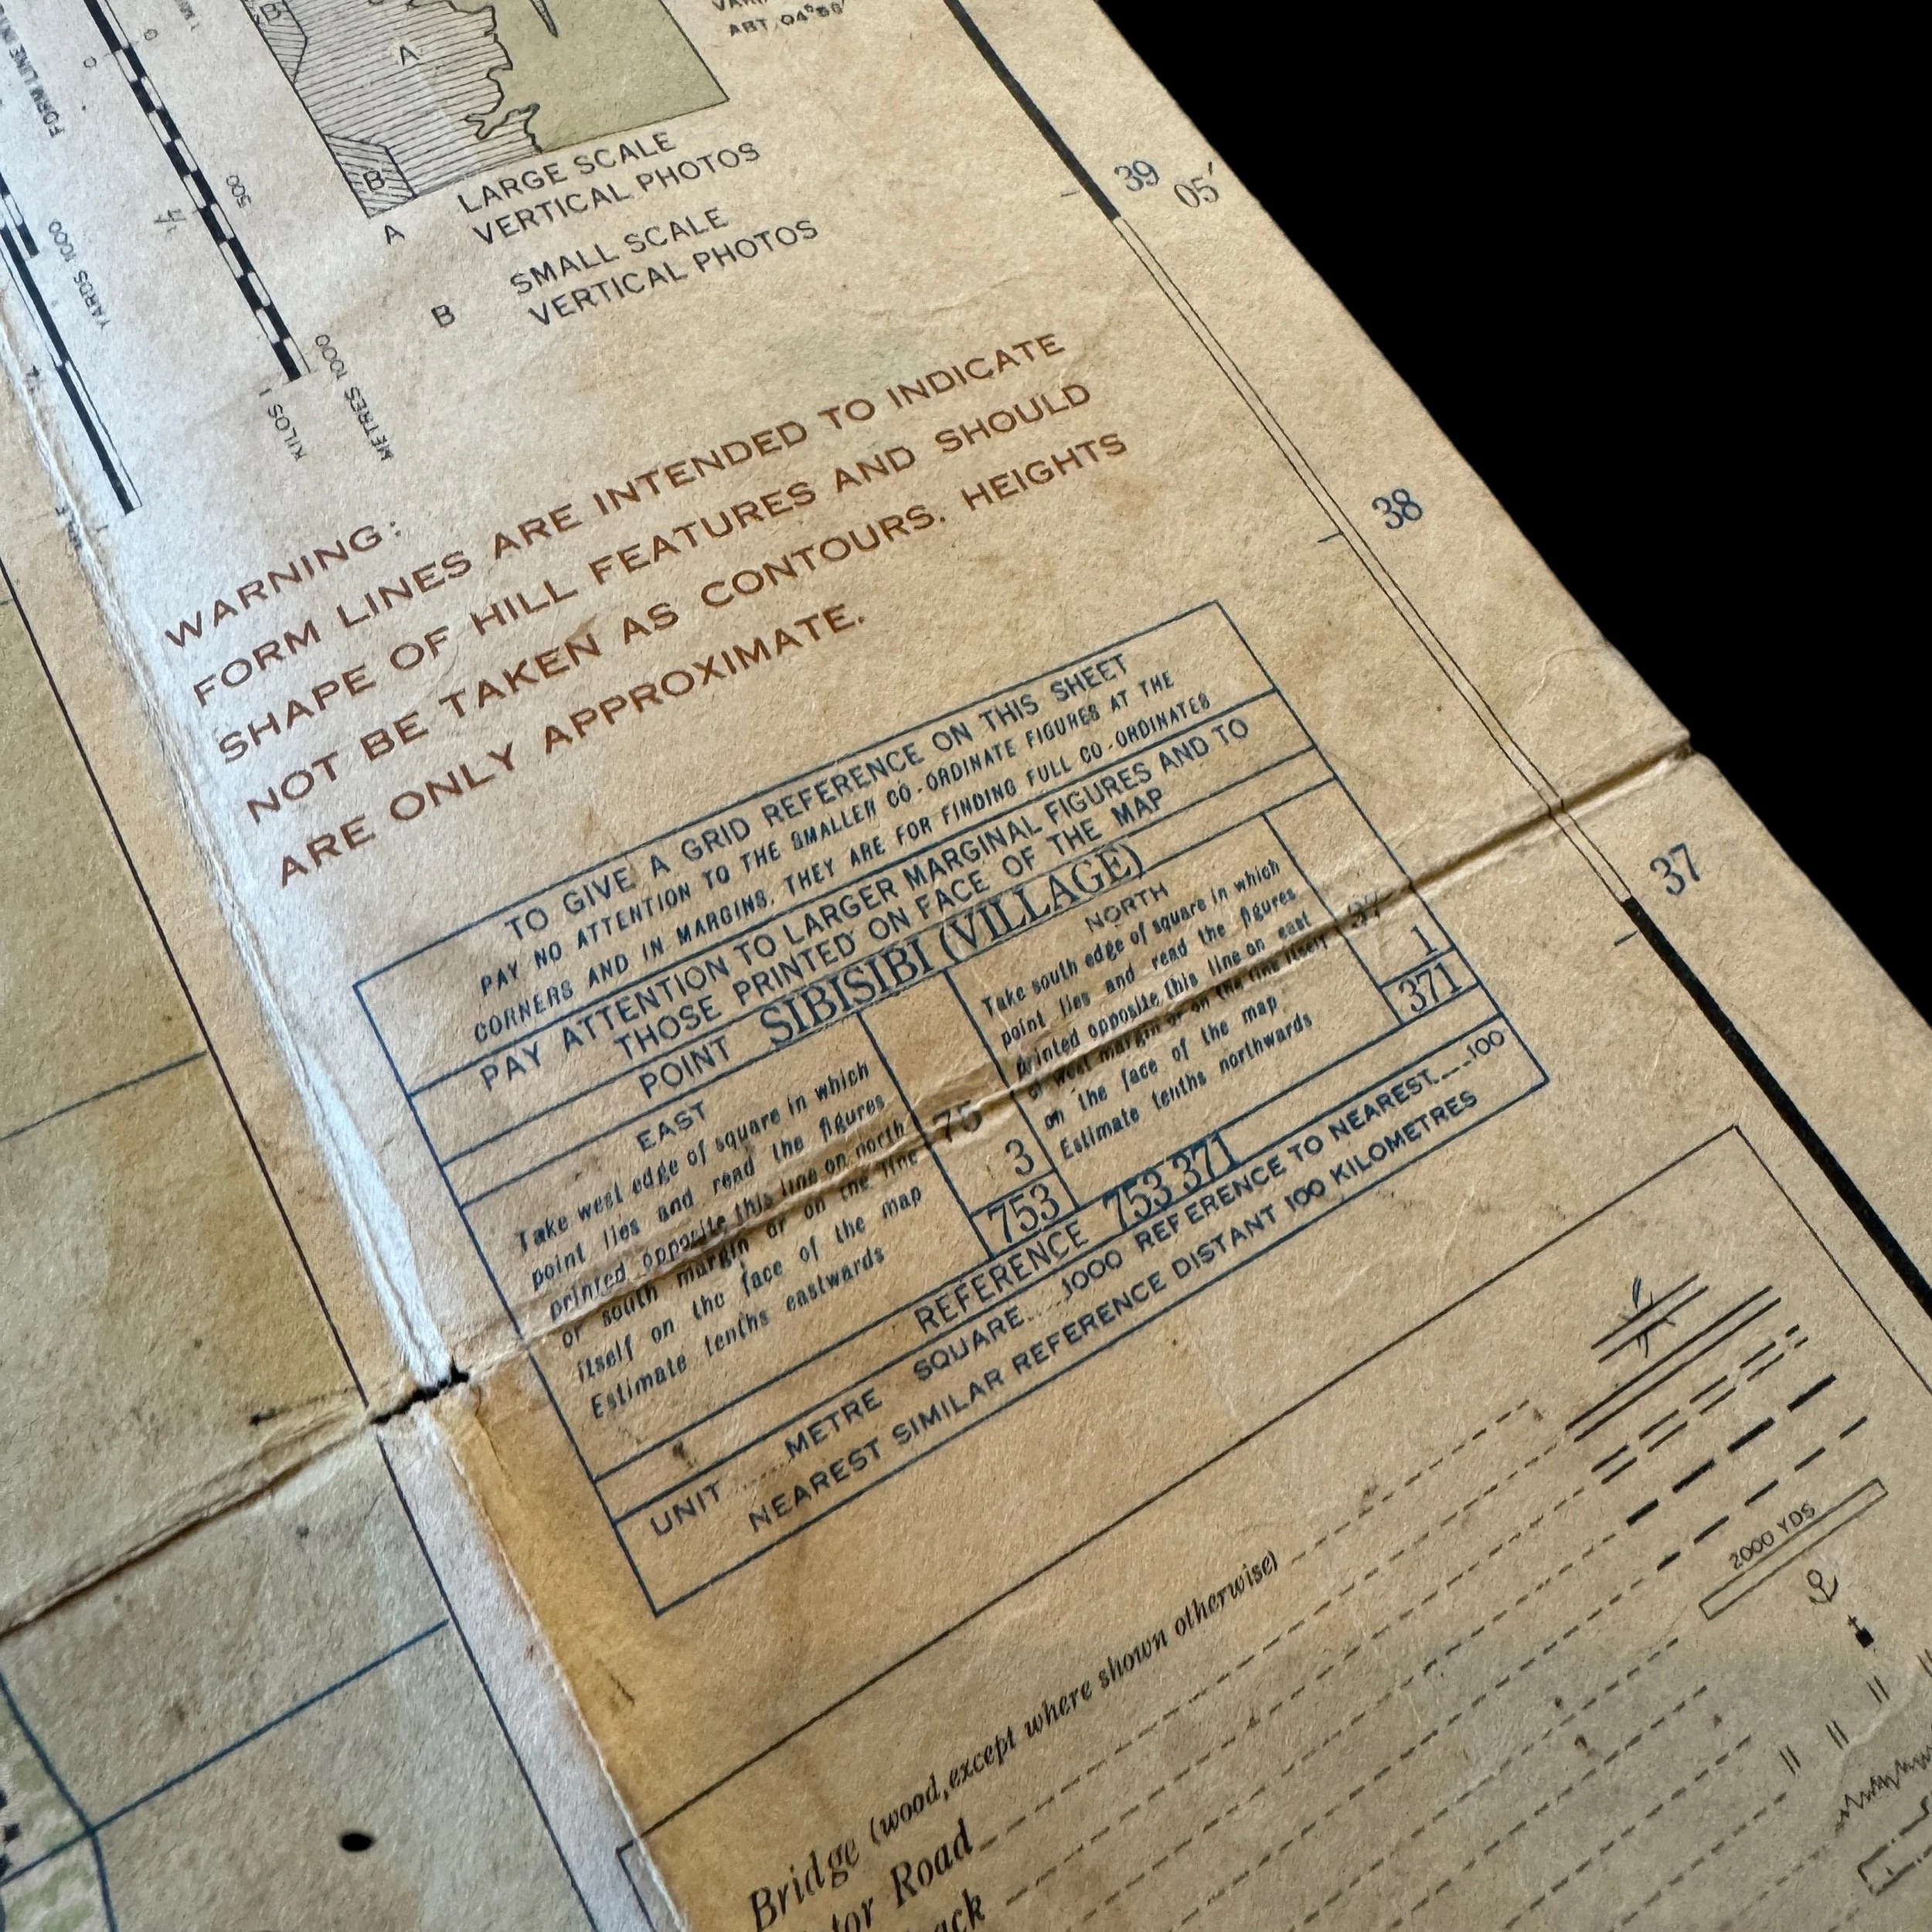 ABT. 04°56'
B
A
B
LARGE SCALE
A VERTICAL PHOTOS
SMALL SCALE
B VERTICAL PHOTOS
FORM LINE
0
0
500
YARDS 1000
METRES 1000
KILOS 1
1
39
05'
38
37
WARNING:
FORM LINES ARE INTENDED TO INDICATE
SHAPE OF HILL FEATURES AND SHOULD
NOT BE TAKEN AS CONTOURS. HEIGHTS
ARE ONLY APPROXIMATE.
TO GIVE A GRID REFERENCE ON THIS SHEET
PAY NO ATTENTION TO THE SMALLER CO-ORDINATE FIGURES AT THE
CORNERS AND IN MARGINS. THEY ARE FOR FINDING FULL CO-ORDINATES
PAY ATTENTION TO LARGER MARGINAL FIGURES AND TO
THOSE PRINTED ON FACE OF THE MAP
POINT SIBISIBI (VILLAGE)
EAST
Take west edge of square in which
point lies and read the figures
printed opposite this line on north
or south margin or on the line
itself on the face of the map
75
Estimate tenths eastwards
3
753
NORTH
Take south edge of square in which
point lies and read the figures
printed opposite this line on east
or west margin or on the line itself
on the face of the map
37
Estimate tenths northwards
1
371
REFERENCE 753 371
UNIT METRE SQUARE 1000 REFERENCE TO NEAREST 100
NEAREST SIMILAR REFERENCE DISTANT 100 KILOMETRES
Bridge (wood, except where shown otherwise)
Road
2000 YDS